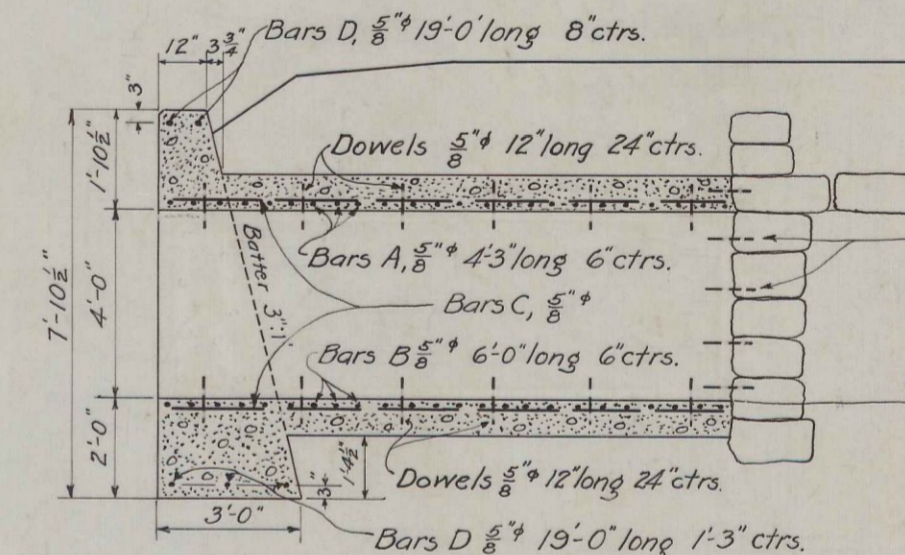 Bars D, 5/8"φ 19'-0" long 8" ctrs.
12" 3 3/4"
3"
1'-10 1/2"
Dowels 5/8"φ 12" long 24" ctrs.
Bars A, 5/8"φ 4'-3" long 6" ctrs.
7'-10 1/2"
4'-0"
Batter 3":1'
Bars C, 5/8"φ
Bars B 5/8"φ 6'-0" long 6" ctrs.
2'-0"
1'-4 1/2"
3"
Dowels 5/8"φ 12" long 24" ctrs.
3'-0"
Bars D 5/8"φ 19'-0" long 1'-3" ctrs.